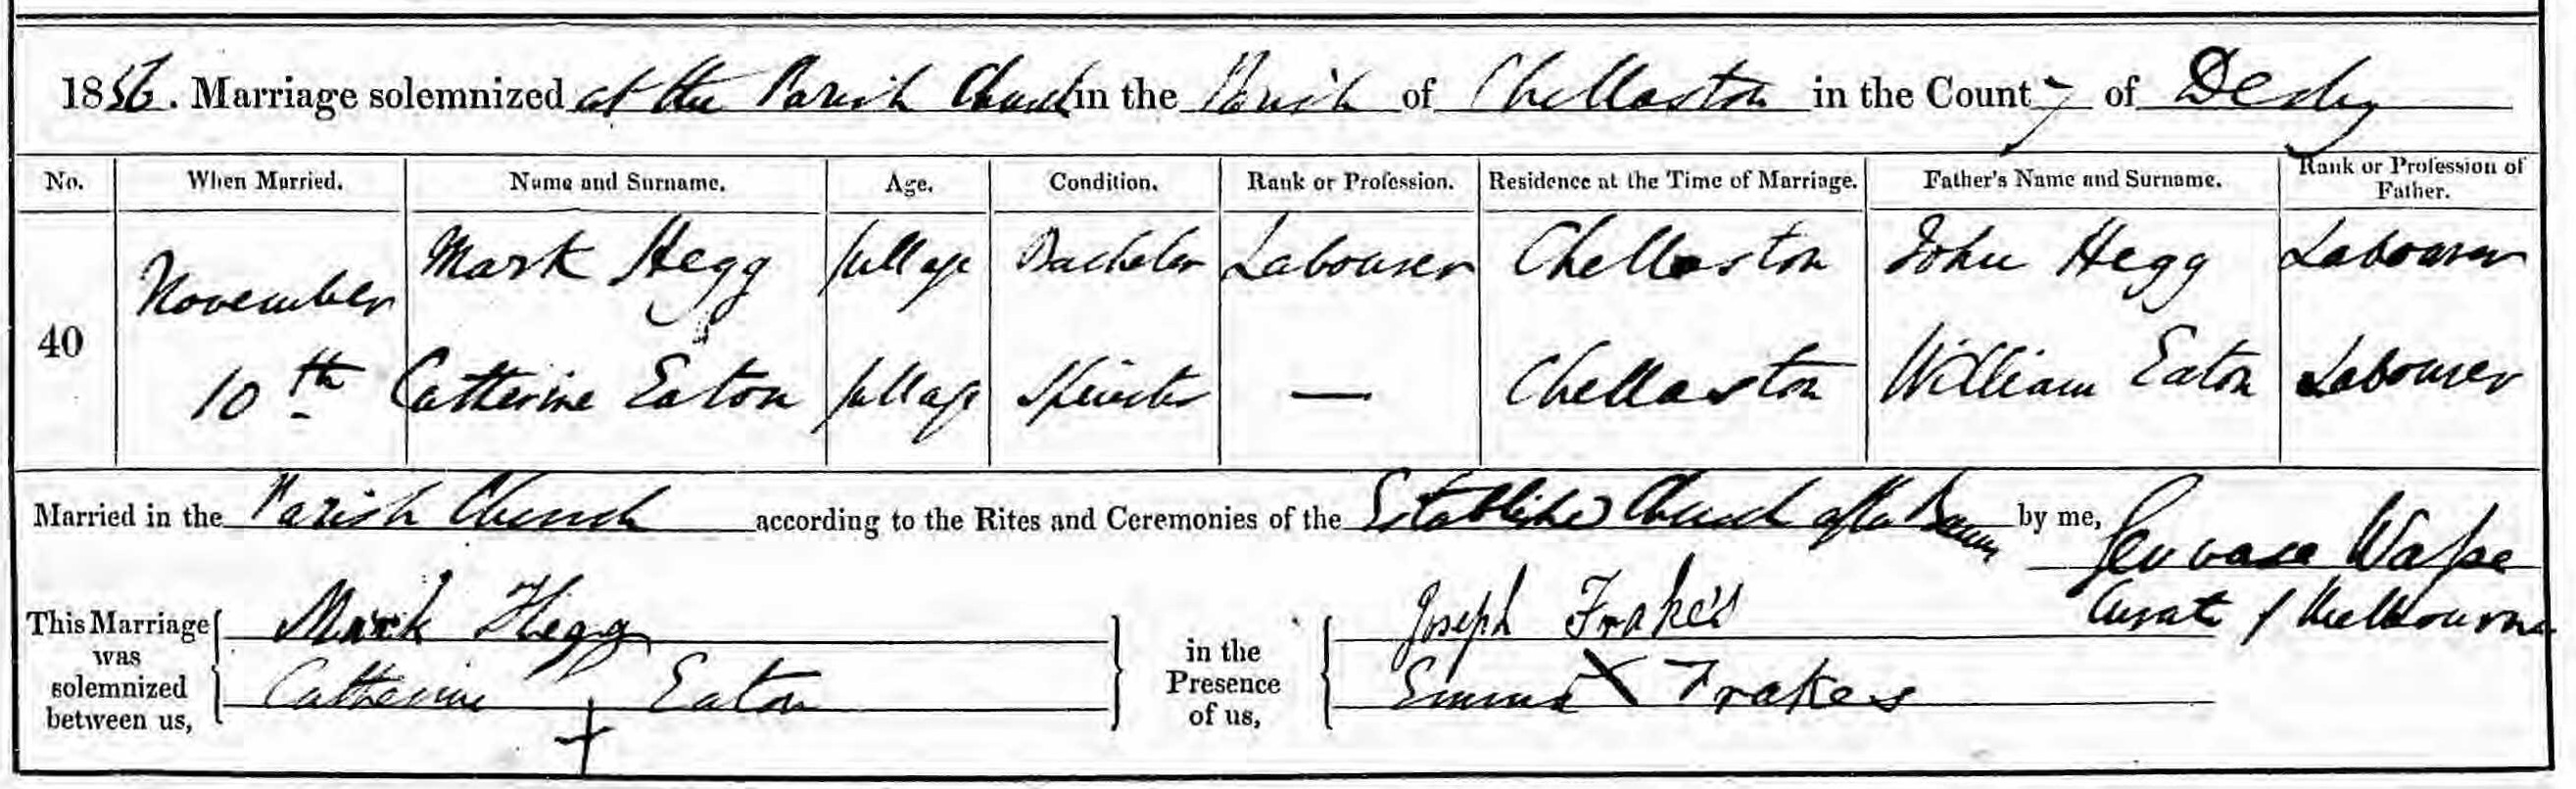 1856. Marriage solemnized at the Parish Church in the Parish of Chellaston in the County of Derby
No. When Married. Name and Surname. Age. Condition. Rank or Profession. Residence at the Time of Marriage. Father's Name and Surname. Rank or Profession of Father.
40 November 10th
Mark Hegg full age Bachelor Labourer Chellaston John Hegg Labourer
Catherine Eaton full age Spinster — Chellaston William Eaton Labourer
Married in the Parish Church according to the Rites and Ceremonies of the Established Church after Banns by me, Gervase Wasse
Curate of Melbourne
This Marriage was solemnized between us,
Mark Hegg
Catherine + Eaton
in the Presence of us,
Joseph Frakes
Emma X Frakes